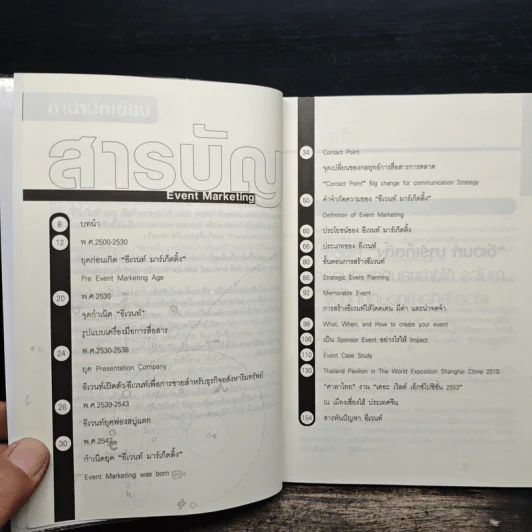 สารบัญ
Event Marketing
8 บทนำ
12 พ.ศ.2500-2530
ยุคก่อนเกิด "อีเวนท์ มาร์เก็ตติ้ง"
Pre Event Marketing Age
20 พ.ศ.2530
จุดกำเนิด "อีเวนท์"
รูปแบบเครื่องมือการสื่อสาร
24 พ.ศ.2530-2538
ยุค Presentation Company
อีเวนท์เปิดตัว-อีเวนท์เพื่อการขายสำหรับธุรกิจอสังหาริมทรัพย์
28 พ.ศ.2539-2543
อีเวนท์ยุคฟองสบู่แตก
30 พ.ศ.2542
กำเนิดยุค "อีเวนท์ มาร์เก็ตติ้ง"
Event Marketing was born
34 Contact Point
จุดเปลี่ยนของกลยุทธ์การสื่อสารการตลาด
"Contact Point" Big change for communication Strategy
50 คำจำกัดความของ "อีเวนท์ มาร์เก็ตติ้ง"
Definition of Event Marketing
60 ประโยชน์ของ อีเวนท์ มาร์เก็ตติ้ง
66 ประเภทของ อีเวนท์
ขั้นตอนการสร้างอีเวนท์
86 Strategic Event Planning
92 Memorable Event
การสร้างอีเวนท์ให้โดดเด่น มีค่า และน่าจดจำ
98 What, When, and How to create your event
106 เป็น Sponsor Event อย่างไรให้ Impact
110 Event Case Study
130 Thailand Pavilion in The World Exposition Shanghai China 2010
"ศาลาไทย" งาน "เดอะ เวิลด์ เอ็กซ์โปซิชั่น 2553"
ณ เมืองเซี่ยงไฮ้ ประเทศจีน
154 สารพันปัญหา อีเวนท์